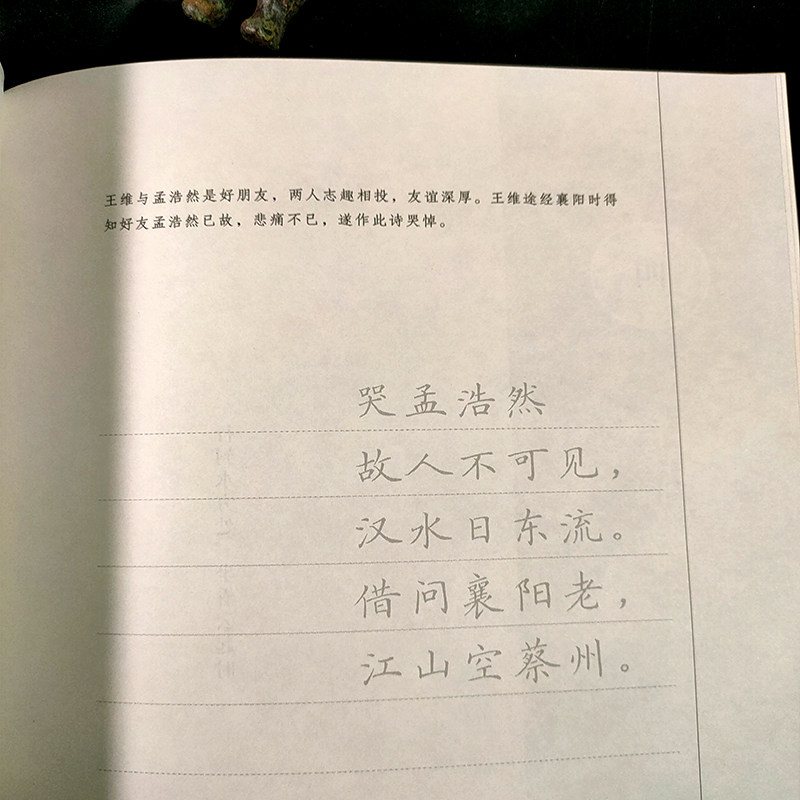 王维与孟浩然是好朋友，两人志趣相投，友谊深厚。王维途经襄阳时得
知好友孟浩然已故，悲痛不已，遂作此诗哭悼。
哭孟浩然
故人不可见，
汉水日东流。
借问襄阳老，
江山空蔡州。